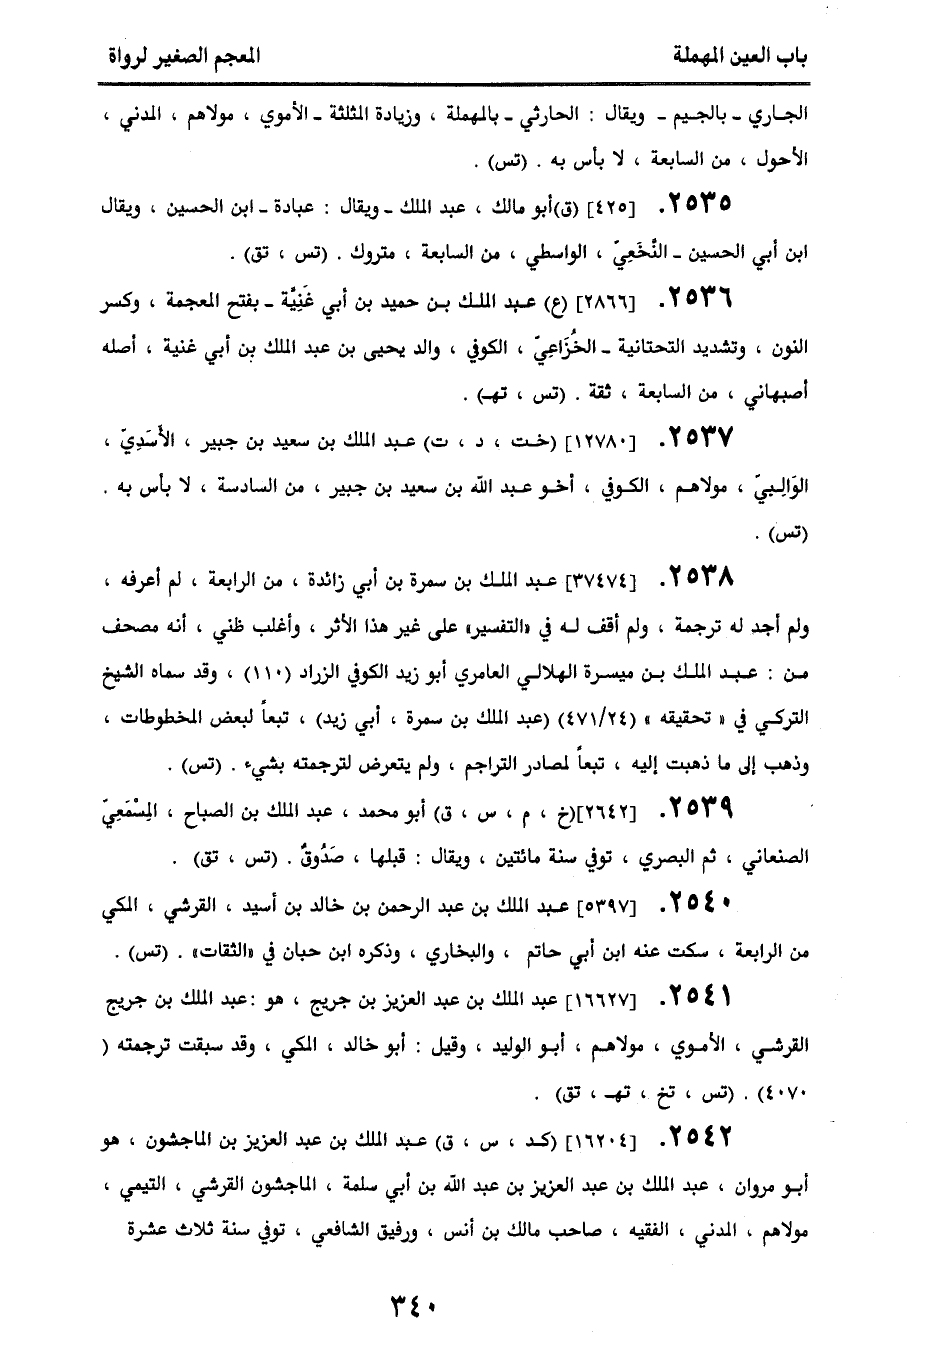 باب العين المهملة
المعجم الصغير لرواة
الجاري ـ بالجيم ـ ويقال : الحارثي ـ بالمهملة ، وزيادة المثلثة ـ الأموي ، مولاهم ، المدني ،
الأحول ، من السابعة ، لا بأس به . (تس) .
٢٥٣٥. [٤٢٥] (ق)أبو مالك ، عبد الملك ـ ويقال : عبادة ـ ابن الحسين ، ويقال
ابن أبي الحسين ـ النَّخَعِيّ ، الواسطي ، من السابعة ، متروك . (تس ، تق) .
٢٥٣٦. [٢٨٦٦] (ع) عبد الملك بن حميد بن أبي غَنِيَّة ـ بفتح المعجمة ، وكسر
النون ، وتشديد التحتانية ـ الخُزَاعِيّ ، الكوفي ، والد يحيى بن عبد الملك بن أبي غنية ، أصله
أصبهاني ، من السابعة ، ثقة . (تس ، تهـ) .
٢٥٣٧. [١٢٧٨٠] (خت ، د ، ت) عبد الملك بن سعيد بن جبير ، الأَسَدِيّ ،
الوَالِبيّ ، مولاهم ، الكوفي ، أخو عبد الله بن سعيد بن جبير ، من السادسة ، لا بأس به .
(تس) .
٢٥٣٨. [٣٧٤٧٤] عبد الملك بن سمرة بن أبي زائدة ، من الرابعة ، لم أعرفه ،
ولم أجد له ترجمة ، ولم أقف له في «التفسير» على غير هذا الأثر ، وأغلب ظني ، أنه مصحف
من : عبد الملك بن ميسرة الهلالي العامري أبو زيد الكوفي الزراد (١١٠) ، وقد سماه الشيخ
التركي في « تحقيقه » (٤٧١/٢٤) (عبد الملك بن سمرة ، أبي زيد) ، تبعاً لبعض المخطوطات ،
وذهب إلى ما ذهبت إليه ، تبعاً لمصادر التراجم ، ولم يتعرض لترجمته بشيء . (تس) .
٢٥٣٩. [٢٦٤٢](خ ، م ، س ، ق) أبو محمد ، عبد الملك بن الصباح ، المِسْمَعِيّ
الصنعاني ، ثم البصري ، توفي سنة مائتين ، ويقال : قبلها ، صَدُوقٌ . (تس ، تق) .
٢٥٤٠. [٥٣٩٧] عبد الملك بن عبد الرحمن بن خالد بن أسيد ، القرشي ، المكي
من الرابعة ، سكت عنه ابن أبي حاتم ، والبخاري ، وذكره ابن حبان في «الثقات» . (تس) .
٢٥٤١. [١٦٦٢٧] عبد الملك بن عبد العزيز بن جريج ، هو :عبد الملك بن جريج
القرشي ، الأموي ، مولاهم ، أبو الوليد ، وقيل : أبو خالد ، المكي ، وقد سبقت ترجمته (
٤٠٧٠) . (تس ، تخ ، تهـ ، تق) .
٢٥٤٢. [١٦٢٠٤] (كد ، س ، ق) عبد الملك بن عبد العزيز بن الماجشون ، هو
أبو مروان ، عبد الملك بن عبد العزيز بن عبد الله بن أبي سلمة ، الماجشون القرشي ، التيمي ،
مولاهم ، المدني ، الفقيه ، صاحب مالك بن أنس ، ورفيق الشافعي ، توفي سنة ثلاث عشرة
٣٤٠